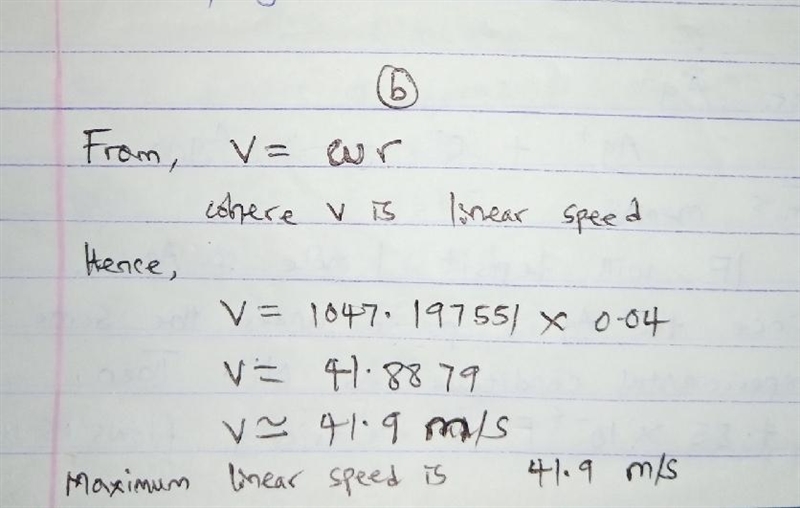 b
From, V = ωr
where v is linear speed
Hence,
V = 1047.197551 × 0.04
V = 41.8879
V ≃ 41.9 m/s
Maximum linear speed is 41.9 m/s